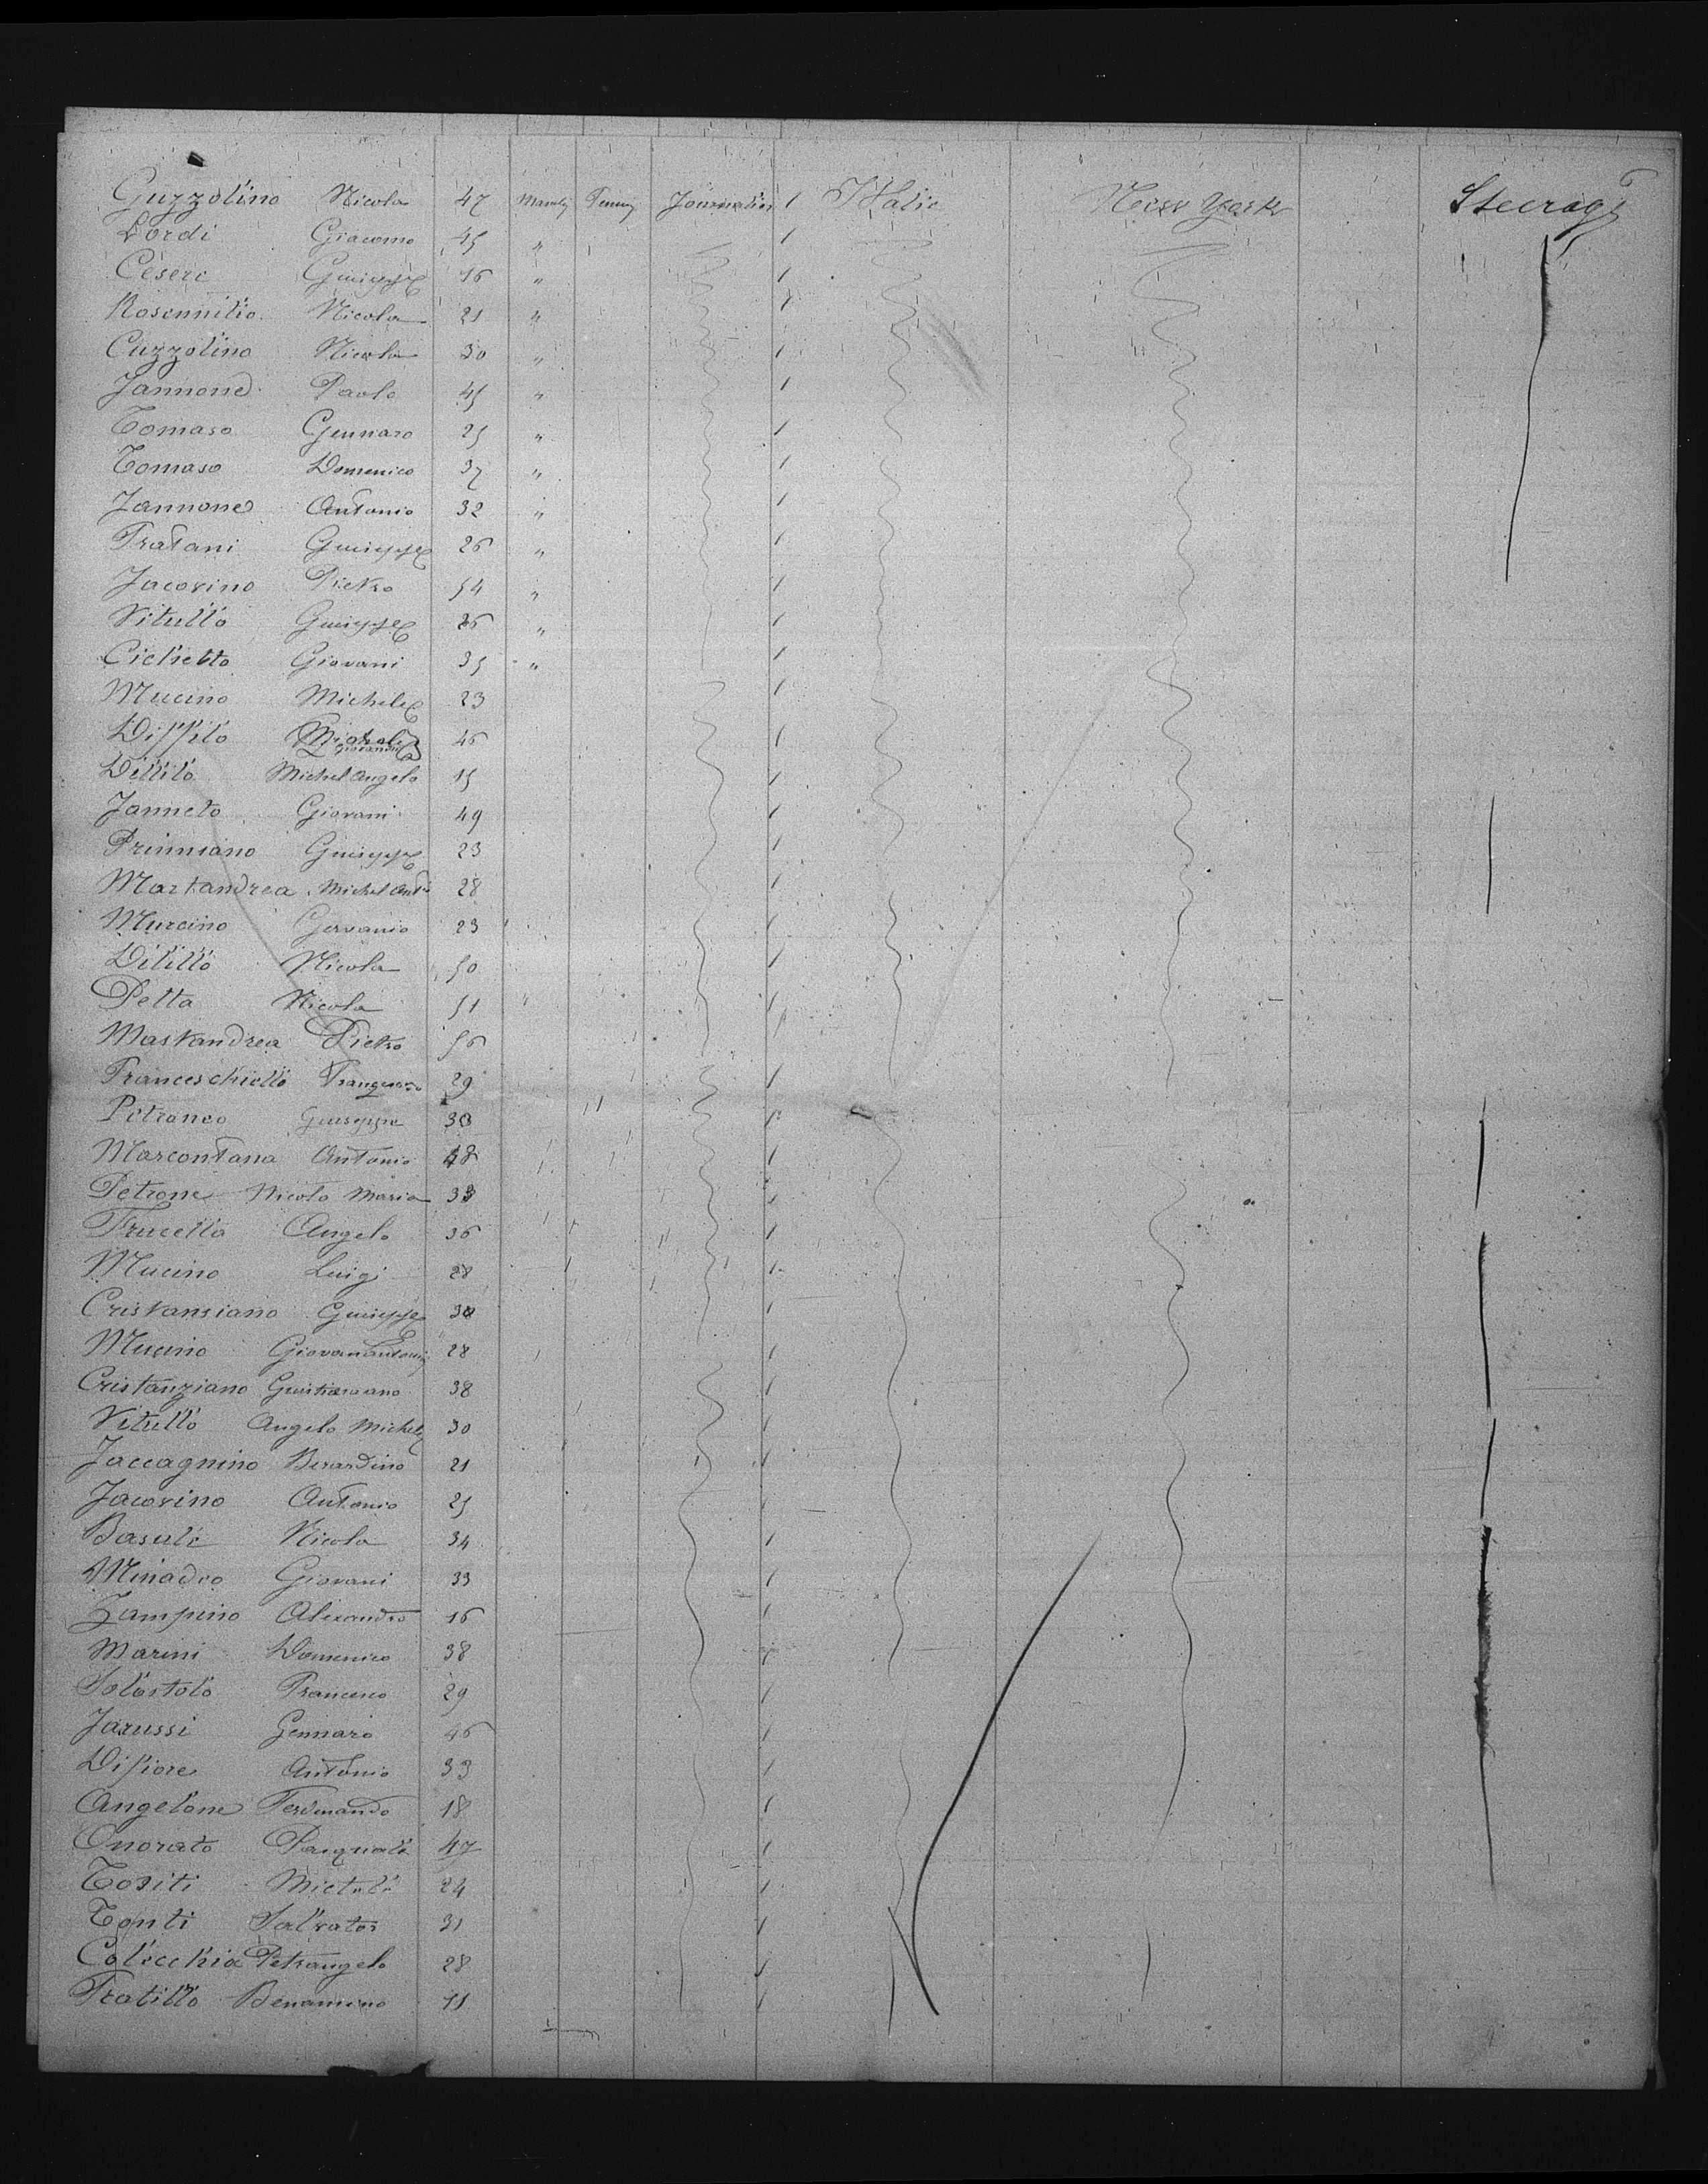 Guzzolino Nicola 47 Journalier 1 Italie New York Steerage
Lordi Giacomo 45 " 1
Ceseri Guiseppe 16 " 1
Nicola 21 " 1
Cuzzolino Nicola 30 " 1
Jannone Paolo 45 " 1
Tomaso Gennaro 25 " 1
Tomaso Domenico 37 " 1
Jannone Antonio 32 " 1
Fratani Guiseppe 26 " 1
Jacovino Pietro 54 " 1
Vitullo Guiseppe 26 " 1
Cichetto Giovani 35 " 1
Mucino Michele 23 1
Giovanni 46 1
Dillilo Michel Angelo 15 1
Janneto Giovani 49 1
Primiano Guiseppe 23 1
Martandrea Michel Anto 28 1
Murcino 23 1
Dilillo Nicola 50 1
Petta Nicola 51 1
Mastandrea Pietro 56 1
Franceschiello 29 1
Guiseppe 30 1
Marcontana Antonio 48 1
Petrone Nicola Maria 33 1
Frucella Angelo 36 1
Mucino Luigi 28 1
Cristansiano Guiseppe 30 1
Mucino Giovanantonio 28 1
Cristanziano 38 1
Vitullo Angelo Michele 30 1
Jaccagnino Berardino 21 1
Jacovino Antonio 25 1
Basule Nicola 34 1
Minadeo Giovani 33 1
Zampino Alexandro 16 1
Marini Domenico 38 1
Francesco 29 1
Jarussi Gennaro 46 1
Difiore Antonio 33 1
Angelone Ferdinando 18 1
Onorato Pasquale 47 1
Tositi 24 1
Tonti Salvator 31 1
Colecchia Petrangelo 28 1
Fratillo Benamino 1